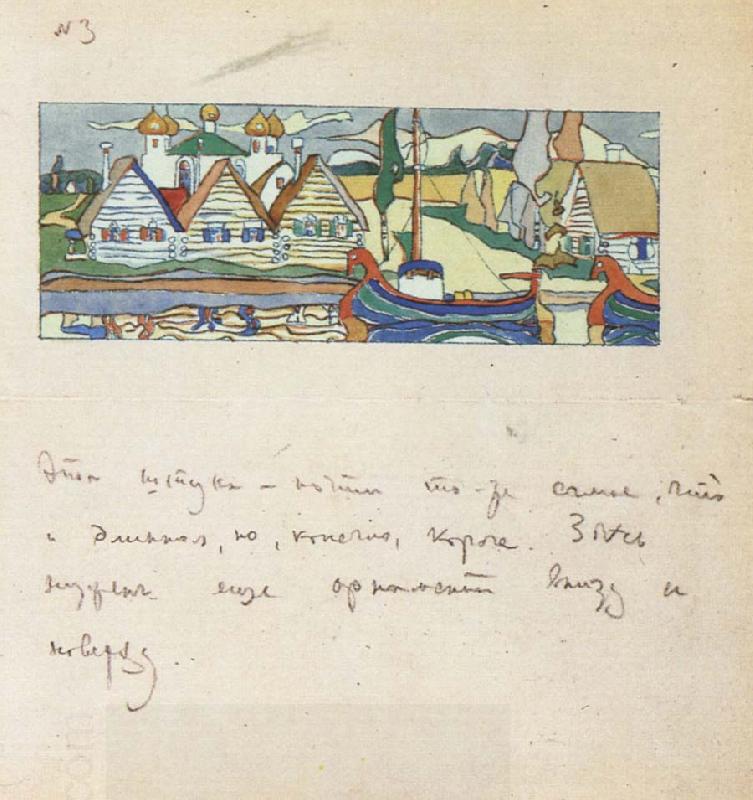 № 3
Эта штука – почти то-же самое, что
и длинная, но, конечно, короче. Здѣсь
нужен еще орнамент внизу и
поверху.